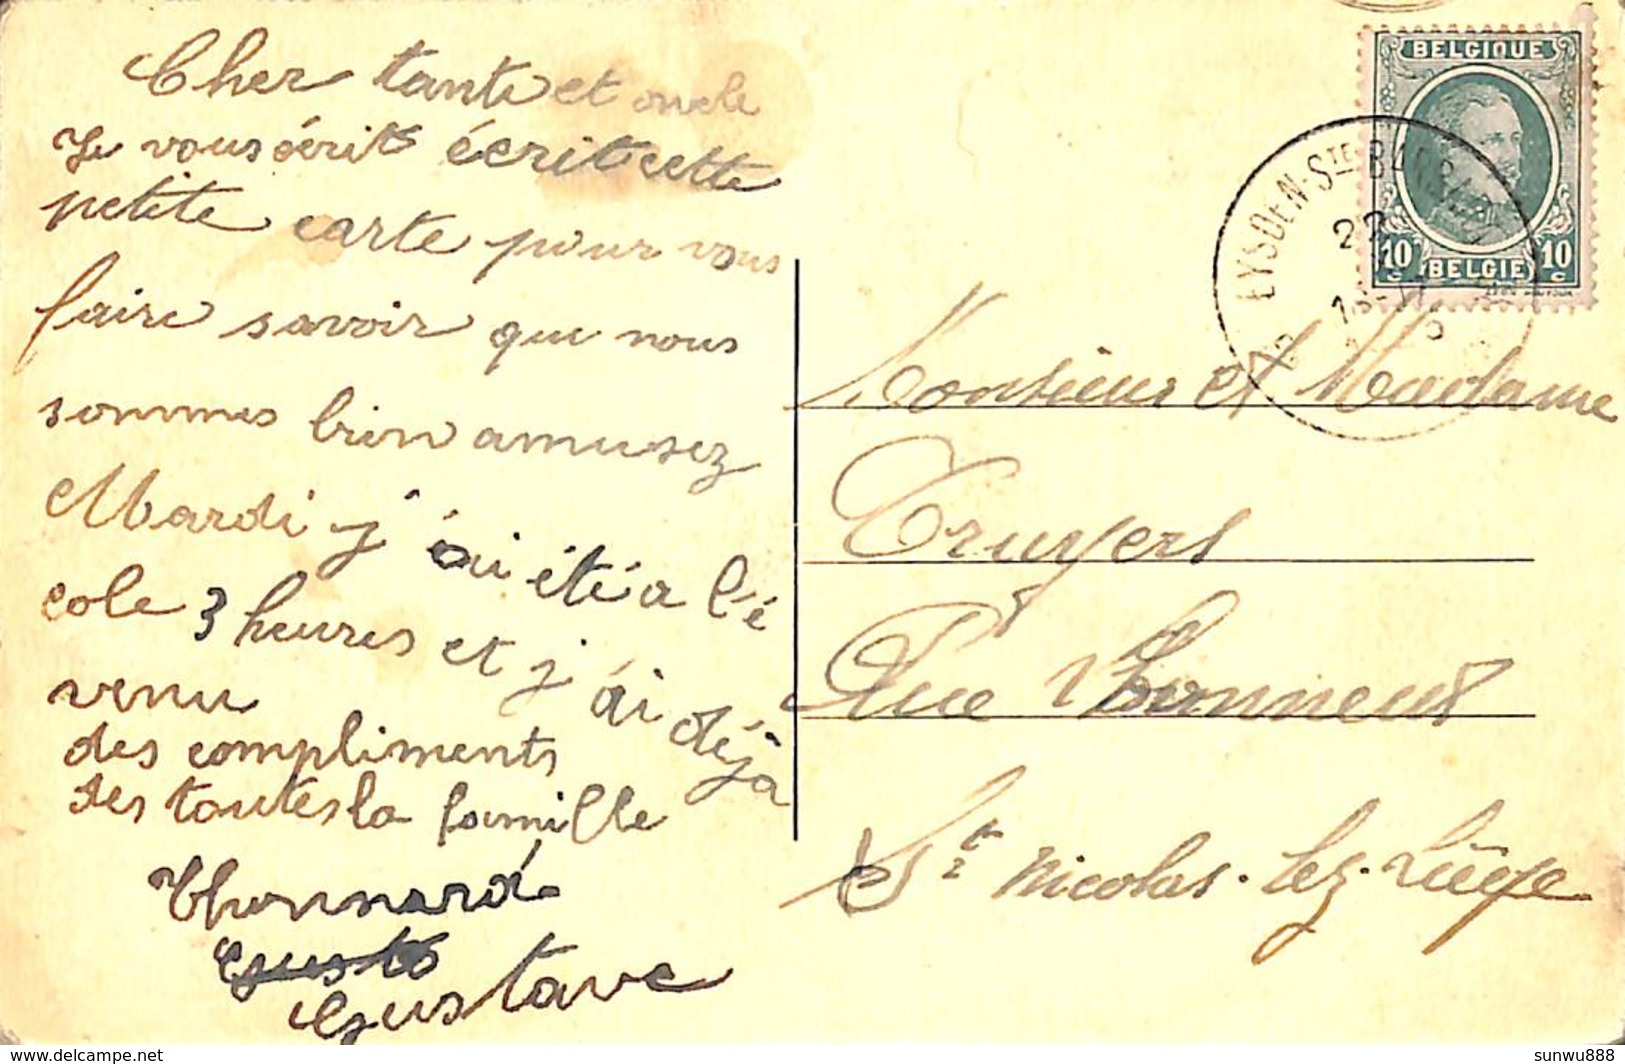 Cher tante et oncle
Je vous sérit écrit cette
petite carte pour vous
faire savoir que nous
sommes bien amusez
Mardi j'ai été a l'é
cole 3 heures et j'ai déjà
venu
des compliments
des toutes la famille
Thonnard
Gusta
Gustave
BELGIQUE
10 c BELGIE 10 c
EYSDEN-STE-BARBE
Monsieur et Madame
Cruyers
Rue Bonneux
St Nicolas-lez-Liège
delcampe.net
sunwu888